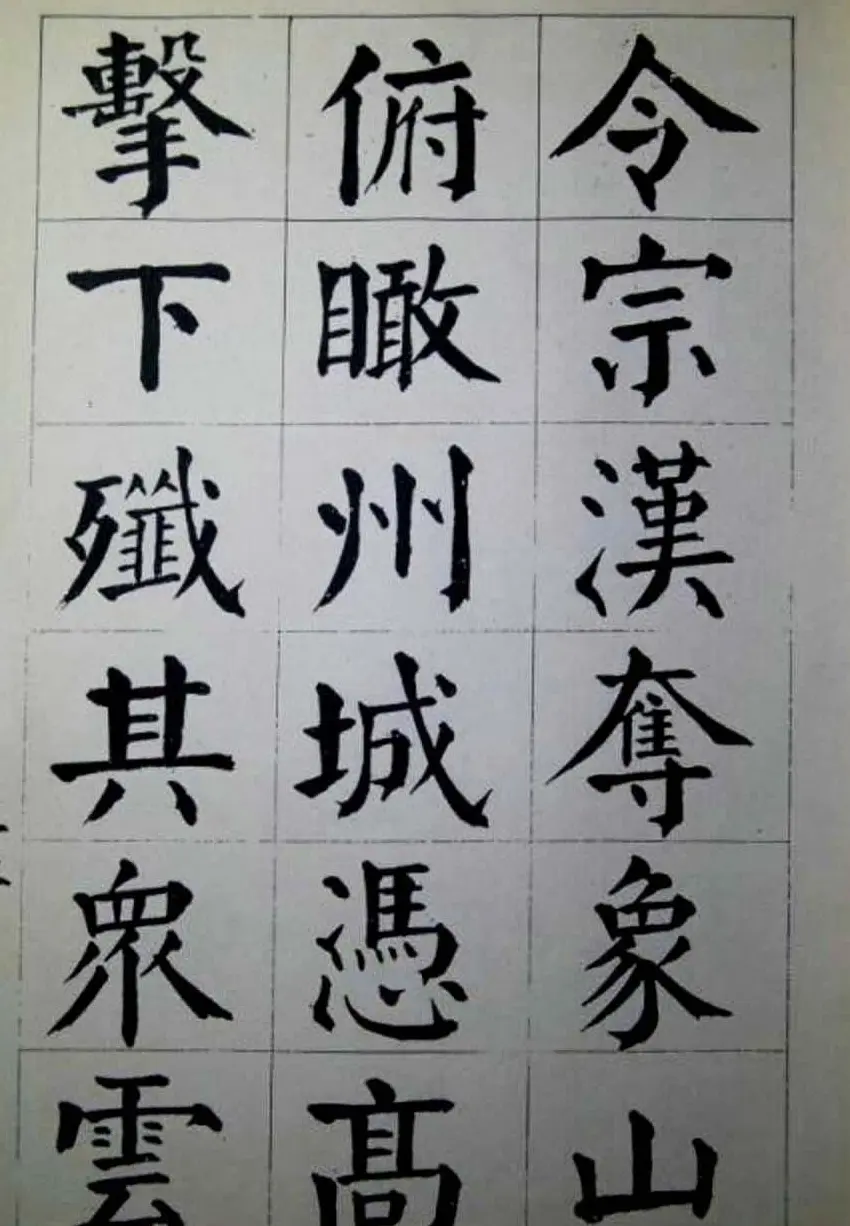 令宗漢奪象山
俯瞰州城憑高
擊下殲其眾雲